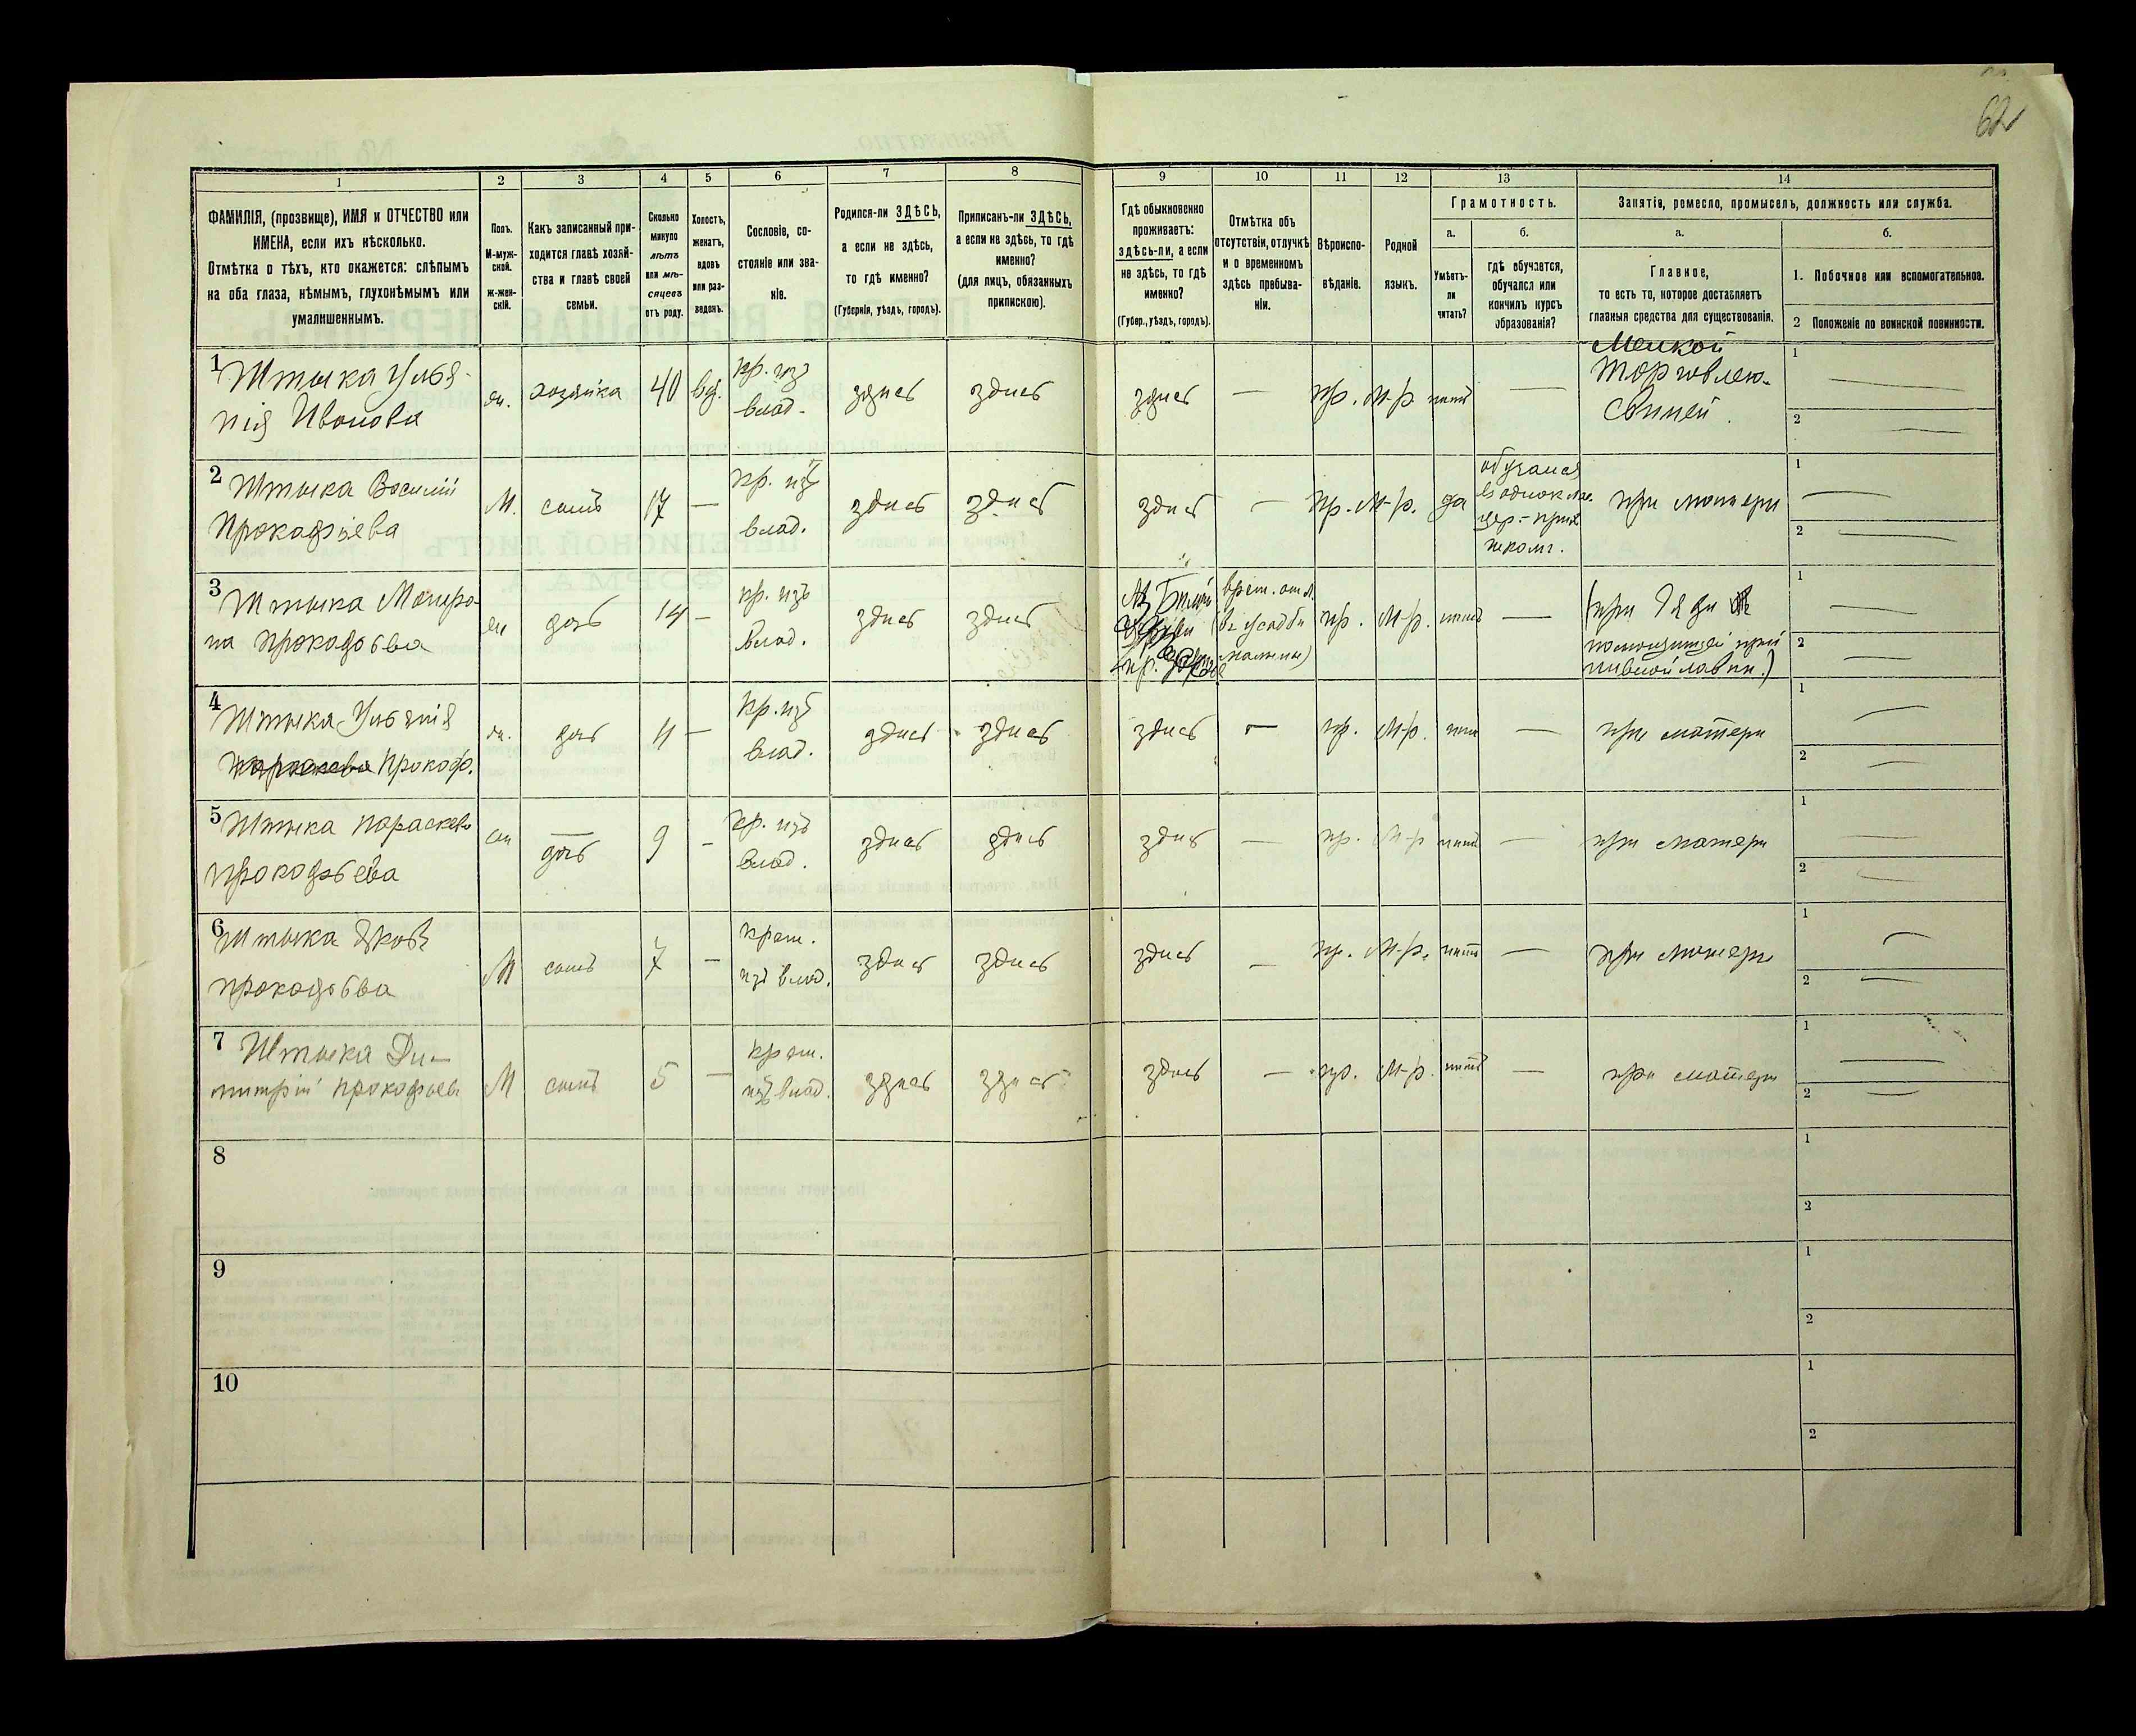 62
1 2 3 4 5 6 7 8 9 10 11 12 13 14
ФАМИЛІЯ, (прозвище), ИМЯ и ОТЧЕСТВО или
ИМЕНА, если ихъ нѣсколько.
Отмѣтка о тѣхъ, кто окажется: слѣпымъ
на оба глаза, нѣмымъ, глухонѣмымъ или
умалишеннымъ.
Полъ.
М-муж-
ской.
ж-жен-
скій.
Какъ записанный при-
ходится главѣ хозяй-
ства и главѣ своей
семьи.
Сколько
минуло
лѣтъ
или мѣ-
сяцевъ
отъ роду.
Холостъ,
женатъ,
вдовъ
или раз-
веденъ.
Сословіе, со-
стояніе или зва-
ніе.
Родился-ли ЗДѢСЬ,
а если не здѣсь,
то гдѣ именно?
(Губернія, уѣздъ, городъ).
Приписанъ-ли ЗДѢСЬ,
а если не здѣсь, то гдѣ
именно?
(для лицъ, обязанныхъ
припискою).
Гдѣ обыкновенно
проживаетъ:
здѣсь-ли, а если
не здѣсь, то гдѣ
именно?
(Губер., уѣздъ, городъ).
Отмѣтка объ
отсутствіи, отлучкѣ
и о временномъ
здѣсь пребыва-
ніи.
Вѣроиспо-
вѣданіе.
Родной
языкъ.
Грамотность.
а.
Умѣетъ-
ли
читать?
б.
гдѣ обучается,
обучался или
кончилъ курсъ
образованія?
Занятіе, ремесло, промыселъ, должность или служба.
а.
Главное,
то есть то, которое доставляетъ
главныя средства для существованія.
б.
1. Побочное или вспомогательное.
2 Положеніе по воинской повинности.
1 Штыка Улья-
нія Иванова
ж. хозяйка 40 вд.
кр. изъ
влад.
здѣсь здѣсь здѣсь — пр. М-р нѣтъ —
Мелкой
торговлею
свиней
1 —
2 —
2 Штыка Василій
Прокофіева
М. сынъ 17 —
кр. изъ
влад.
здѣсь здѣсь здѣсь — пр. М-р. да
обучался
въ однокла.
цер.-прих
при матери
1 —
2 —
3 Штыка
Прокофьева
ж дочь 14 —
кр. изъ
влад.
здѣсь здѣсь
врем. отл.
пр. М-р. нѣтъ —
(при
пивной лавки.)
1 —
2 —
4 Штыка Ульянія
Прокоф.
ж. дочь 11 —
кр. изъ
влад.
здѣсь здѣсь здѣсь — пр. М-р. нѣтъ — при матери
1 —
2 —
5 Штыка Параскева
Прокофьева
ж дочь 9 —
кр. изъ
влад.
здѣсь здѣсь здѣсь — пр. М-р нѣтъ — при матери
1 —
2 —
6 Штыка Яковъ
Прокофьева
М сынъ 7 —
крест.
изъ влад.
здѣсь здѣсь здѣсь — пр. М-р. нѣтъ — при матери
1 —
2 —
7 Штыка Ди-
митрій Прокофьева
М сынъ 5 —
крест.
изъ влад.
здѣсь здѣсь здѣсь — пр. М-р. нѣтъ — при матери
1 —
2 —
8
1
2
9
1
2
10
1
2